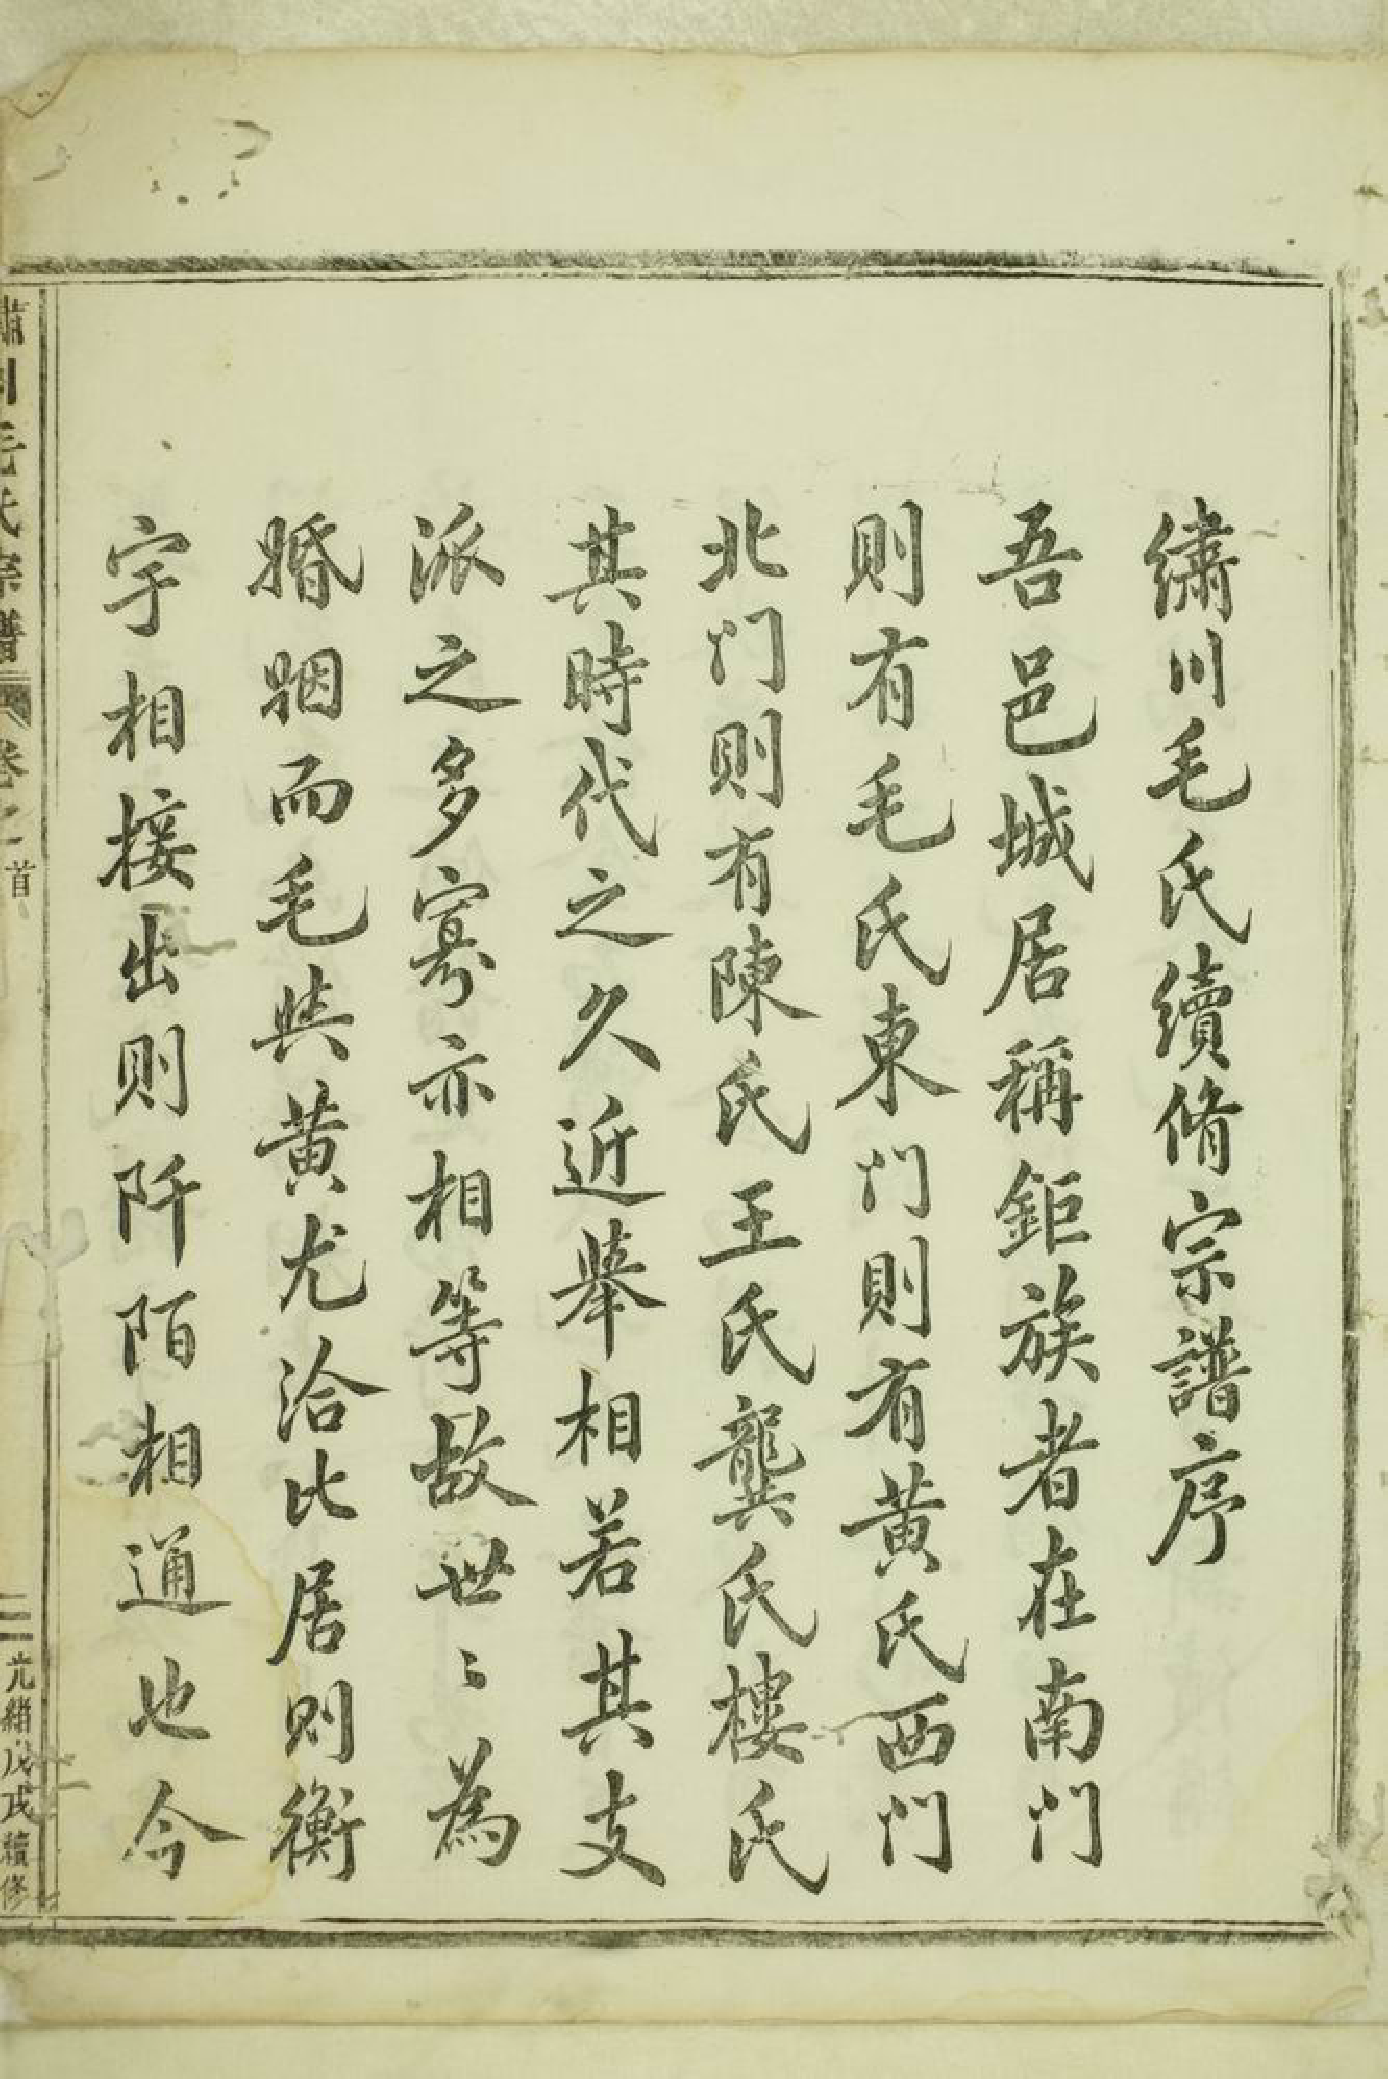 繡川毛氏續脩宗譜序
吾邑城居稱鉅族者在南门
則有毛氏東门則有黄氏西门
北门則有陳氏王氏龔氏樓氏
其時代之久近舉相若其支
派之多寡亦相等故世〻為
婚姻而毛與黄尤洽比居则衡
宇相接出则阡陌相通也今
繡川毛氏宗譜 卷之首 二 光緒戊戌續修